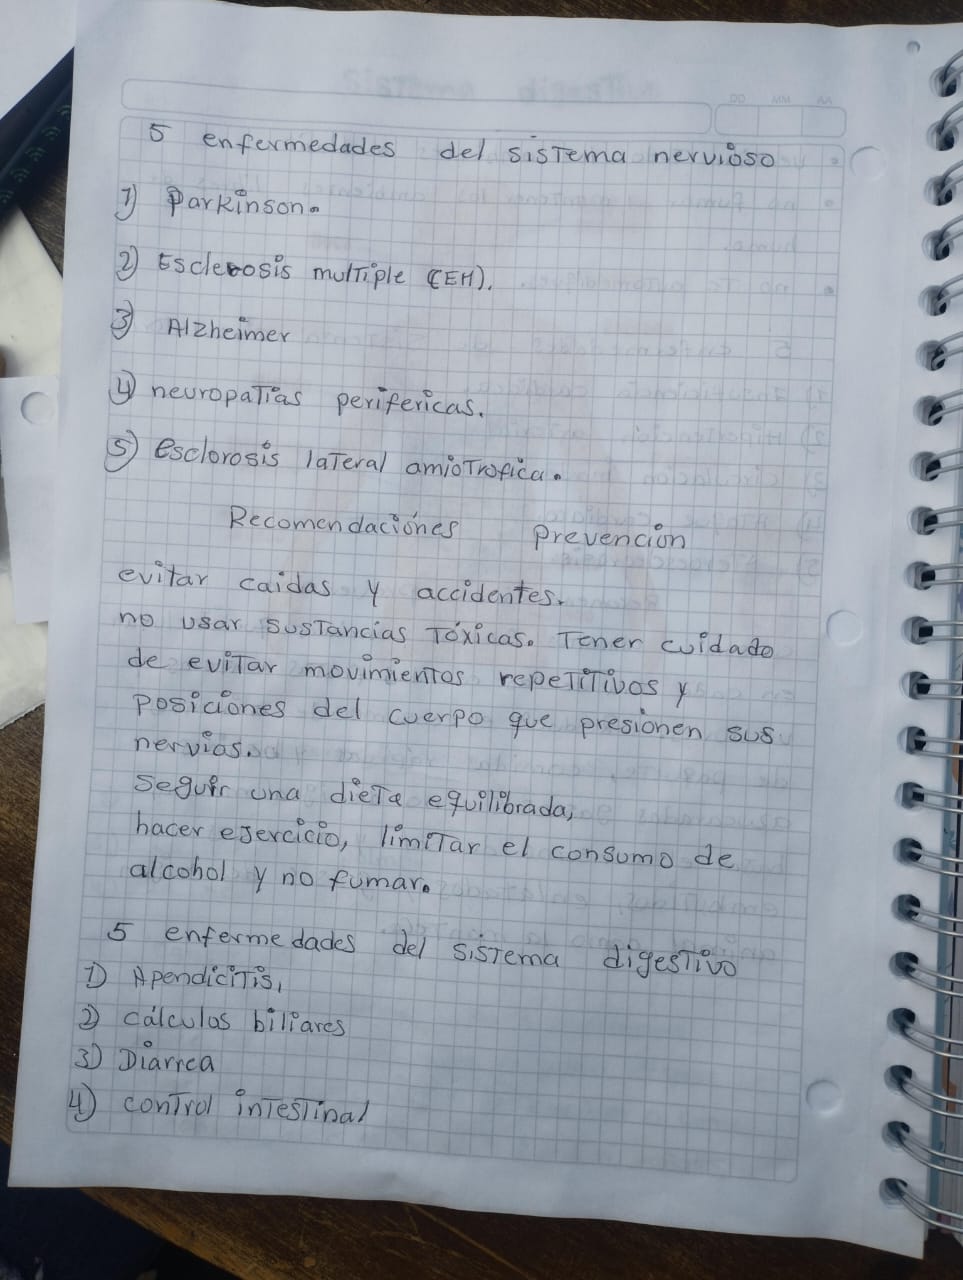 DD MM AA
5 enfermedades del sistema nervioso
1) Parkinson.
2) Esclerosis multiple (EH).
3) Alzheimer
4) neuropatias perifericas.
5) esclorosis lateral amiotrofica.
Recomendaciónes prevención
evitar caidas y accidentes.
no usar sustancias tóxicas. Tener cuidado
de evitar movimientos repetitivos y
posiciones del cuerpo que presionen sus
nervios.
seguir una dieta equilibrada,
hacer ejercicio, limitar el consumo de
alcohol y no fumar.
5 enfermedades del sistema digestivo
1) Apendicitis,
2) cálculos biliares
3) Diarrea
4) control intestinal